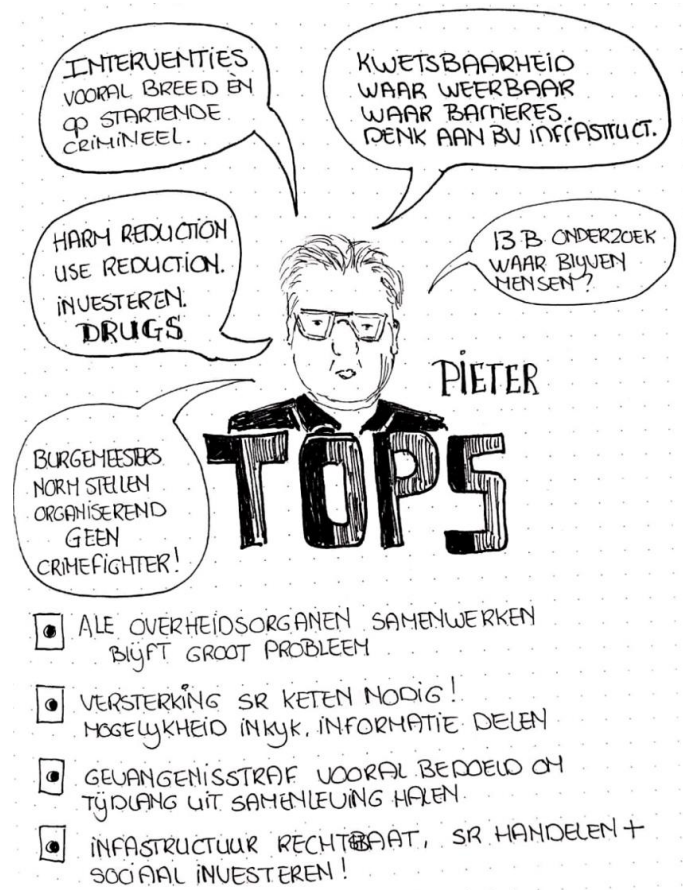 INTERVENTIES
VOORAL BREED ÈN
OP STARTENDE
CRIMINEEL.
KWETSBAARHEID
WAAR WEERBAAR
WAAR BARRIERES.
DENK AAN BV INFRASTRUCT.
HARM REDUCTION
USE REDUCTION.
INVESTEREN.
DRUGS
13 B ONDERZOEK
WAAR BLIJVEN
MENSEN?
PIETER
TOPS
BURGEMEESTERS
NORM STELLEN
ORGANISEREND
GEEN
CRIMEFIGHTER!
ALE OVERHEIDSORGANEN SAMENWERKEN
BLIJFT GROOT PROBLEEM
VERSTERKING SR KETEN NODIG!
MOGELIJKHEID INKIJK, INFORMATIE DELEN
GEVANGENISSTRAF VOORAL BEDOELD OM
TIJDLANG UIT SAMENLEVING HALEN.
INFASTRUCTUUR RECHTSTAAT, SR HANDELEN +
SOCIAAL INVESTEREN!